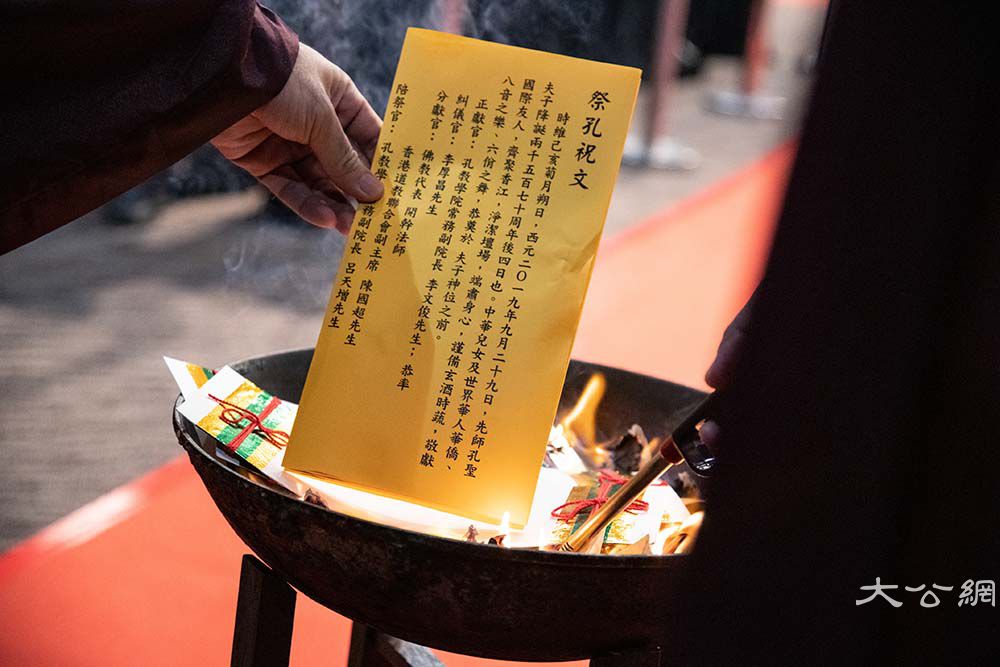 祭孔祝文
時維己亥菊月朔日，西元二〇一九年九月二十九日，先師孔聖
夫子降誕兩千五百七十周年後四日也。中華兒女及世界華人華僑、
國際友人，齊聚香江，淨潔壇場，端肅身心，謹備玄酒時蔬，敬獻
八音之樂、六佾之舞，恭奠於 夫子神位之前。
正獻官：孔教學院常務副院長 李文俊先生；恭率
糾儀官：李厚昌先生
分獻官：佛教代表 開幹法師
香港道教聯合會副主席 陳國超先生
陪祭官：孔教學 務副院長 呂天增先生
大公網